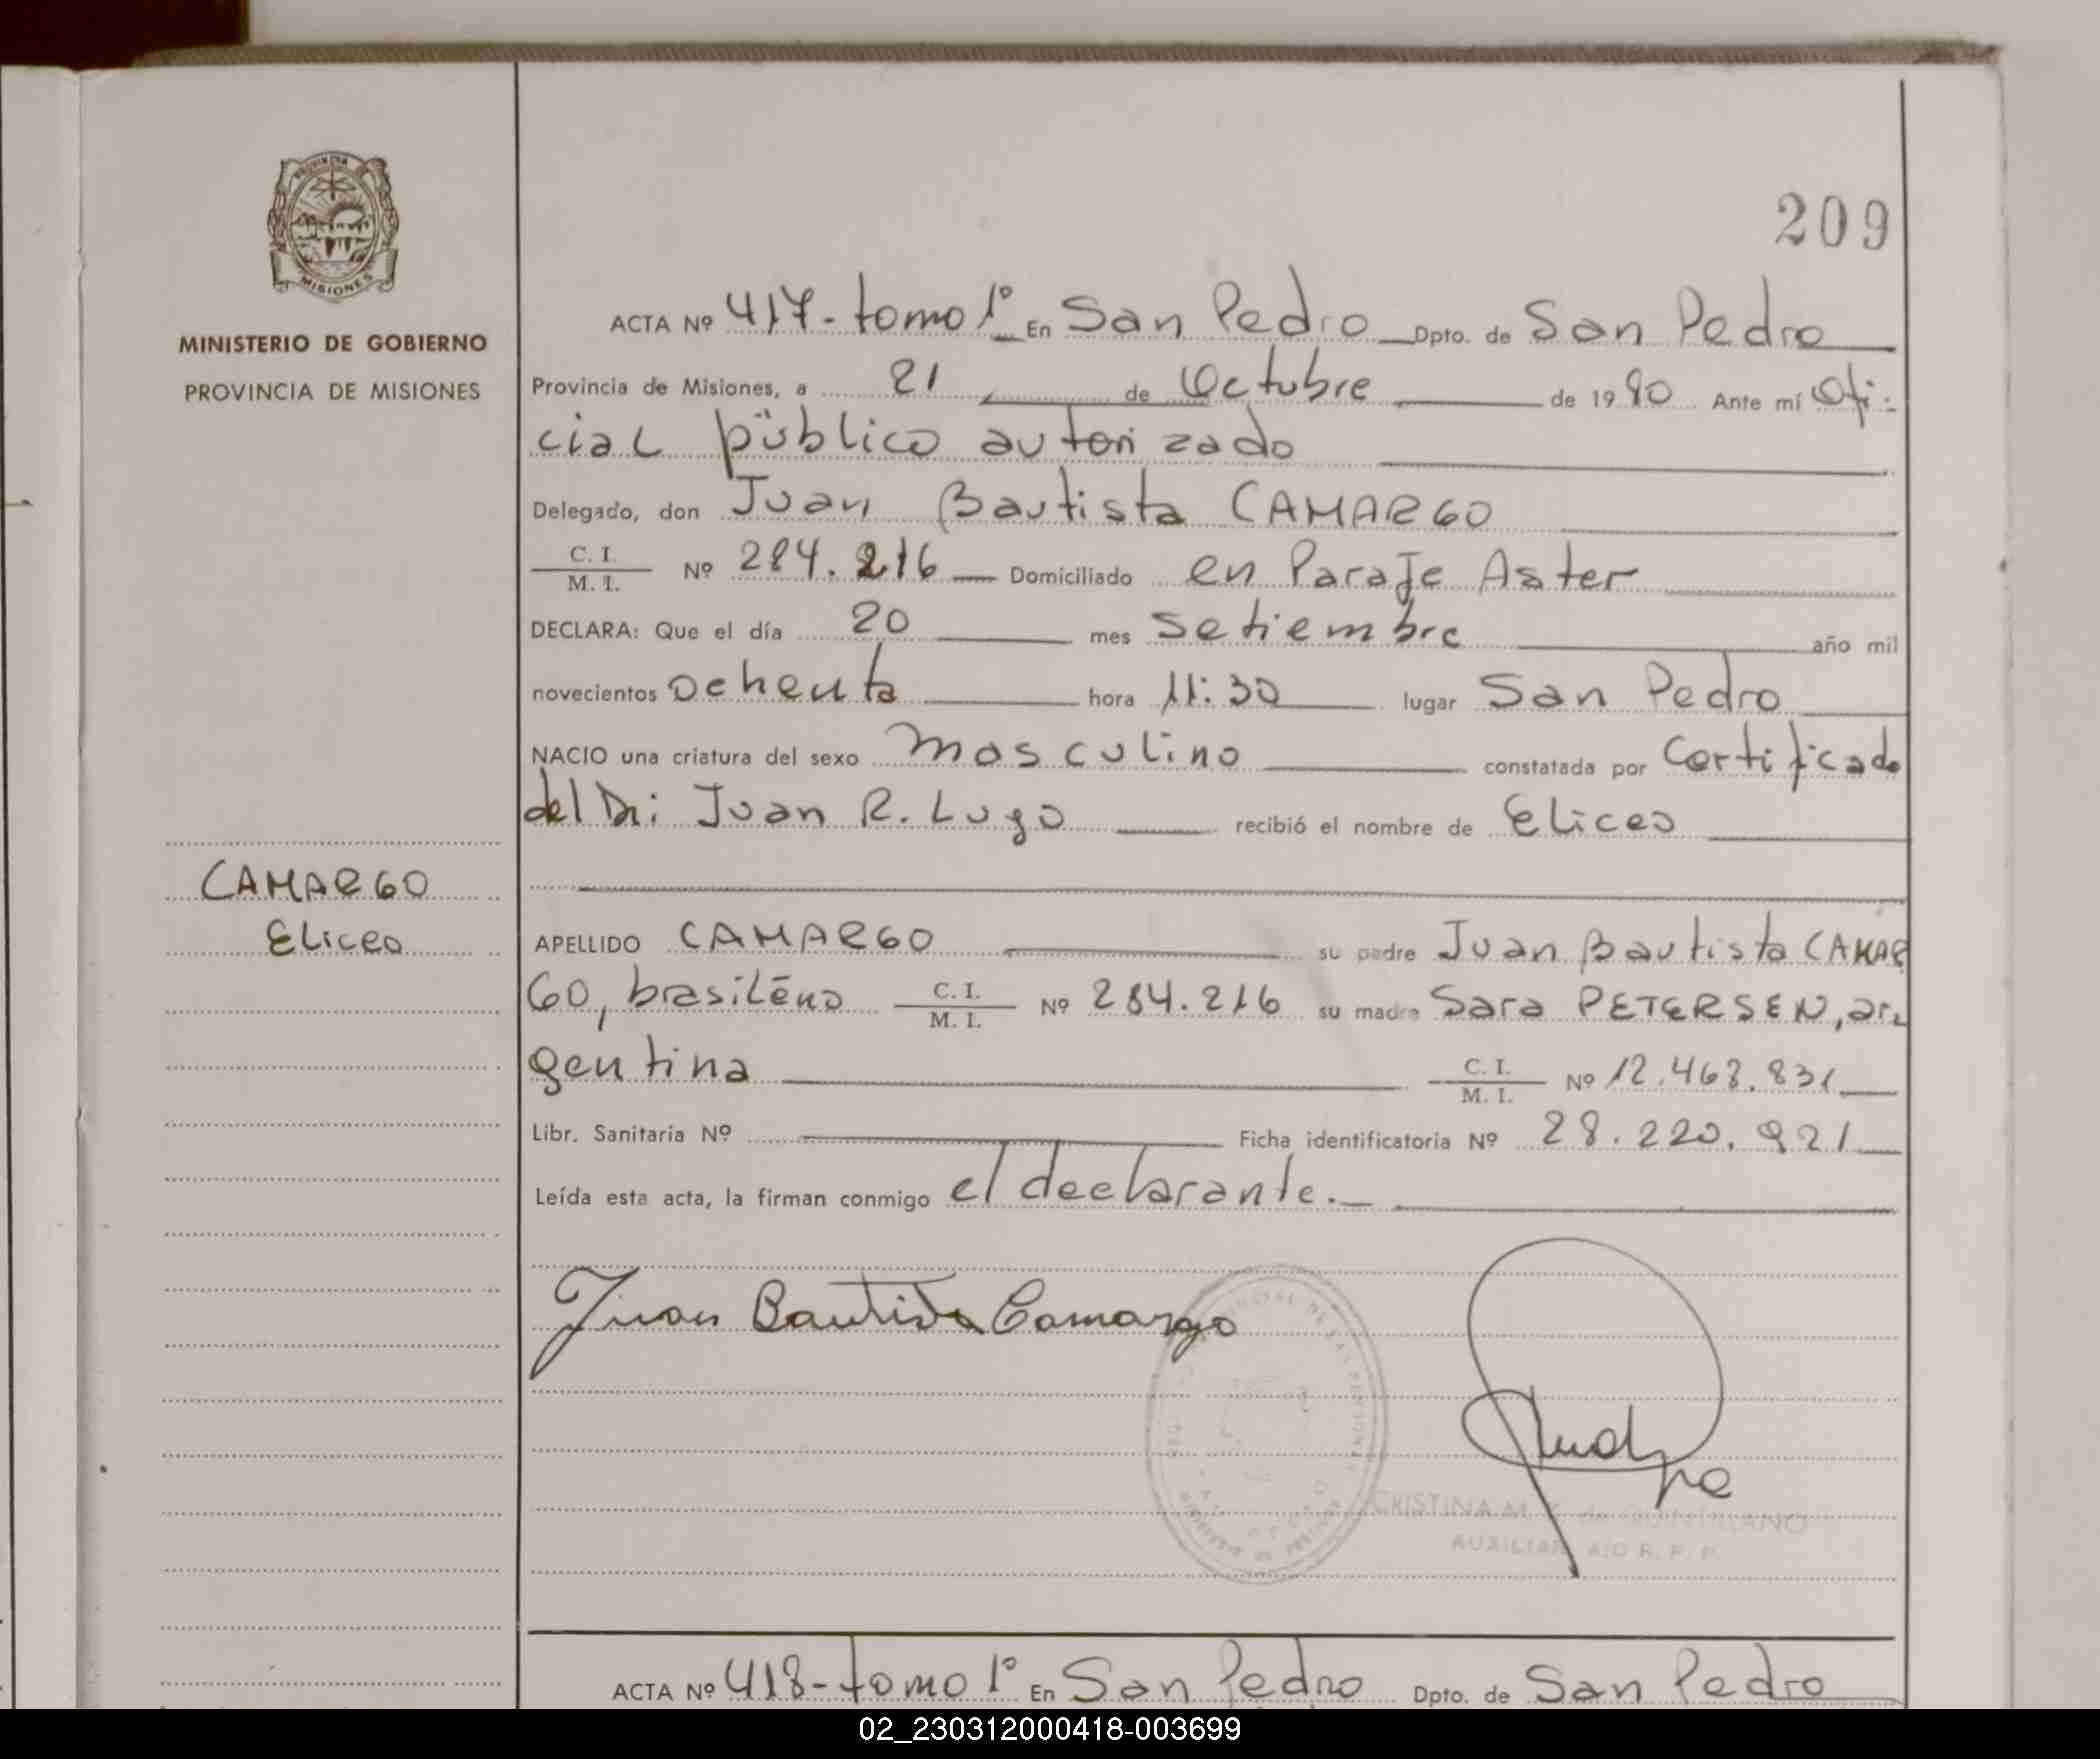 209
PROVINCIA
MISIONES
MINISTERIO DE GOBIERNO
PROVINCIA DE MISIONES
ACTA Nº 417-tomo 1º En San Pedro Dpto. de San Pedro
Provincia de Misiones, a 21 de Octubre de 1980 Ante mí Ofi-
cial público autorizado
Delegado, don Juan Bautista CAMARGO
C. I.
M. I.
Nº 284.216 Domiciliado en Paraje Aster
DECLARA: Que el día 20 mes Setiembre año mil
novecientos Ochenta hora 11:30 lugar San Pedro
NACIO una criatura del sexo masculino constatada por Certificado
del Dr: Juan R. Lugo recibió el nombre de Eliceo
CAMARGO
Eliceo
APELLIDO CAMARGO su padre Juan Bautista CAMAR
GO, brasilēno C. I. M. I. Nº 284.216 su madre Sara PETERSEN, ar-
gentina C. I. M. I. Nº 12.468.831
Libr. Sanitaria Nº Ficha identificatoria Nº 28.220.921
Leída esta acta, la firman conmigo el declarante.
Juan Bautista Camargo
CRISTINA M.
AUXILIAR
ACTA Nº 418-tomo 1º En San Pedro Dpto. de San Pedro
02_230312000418-003699